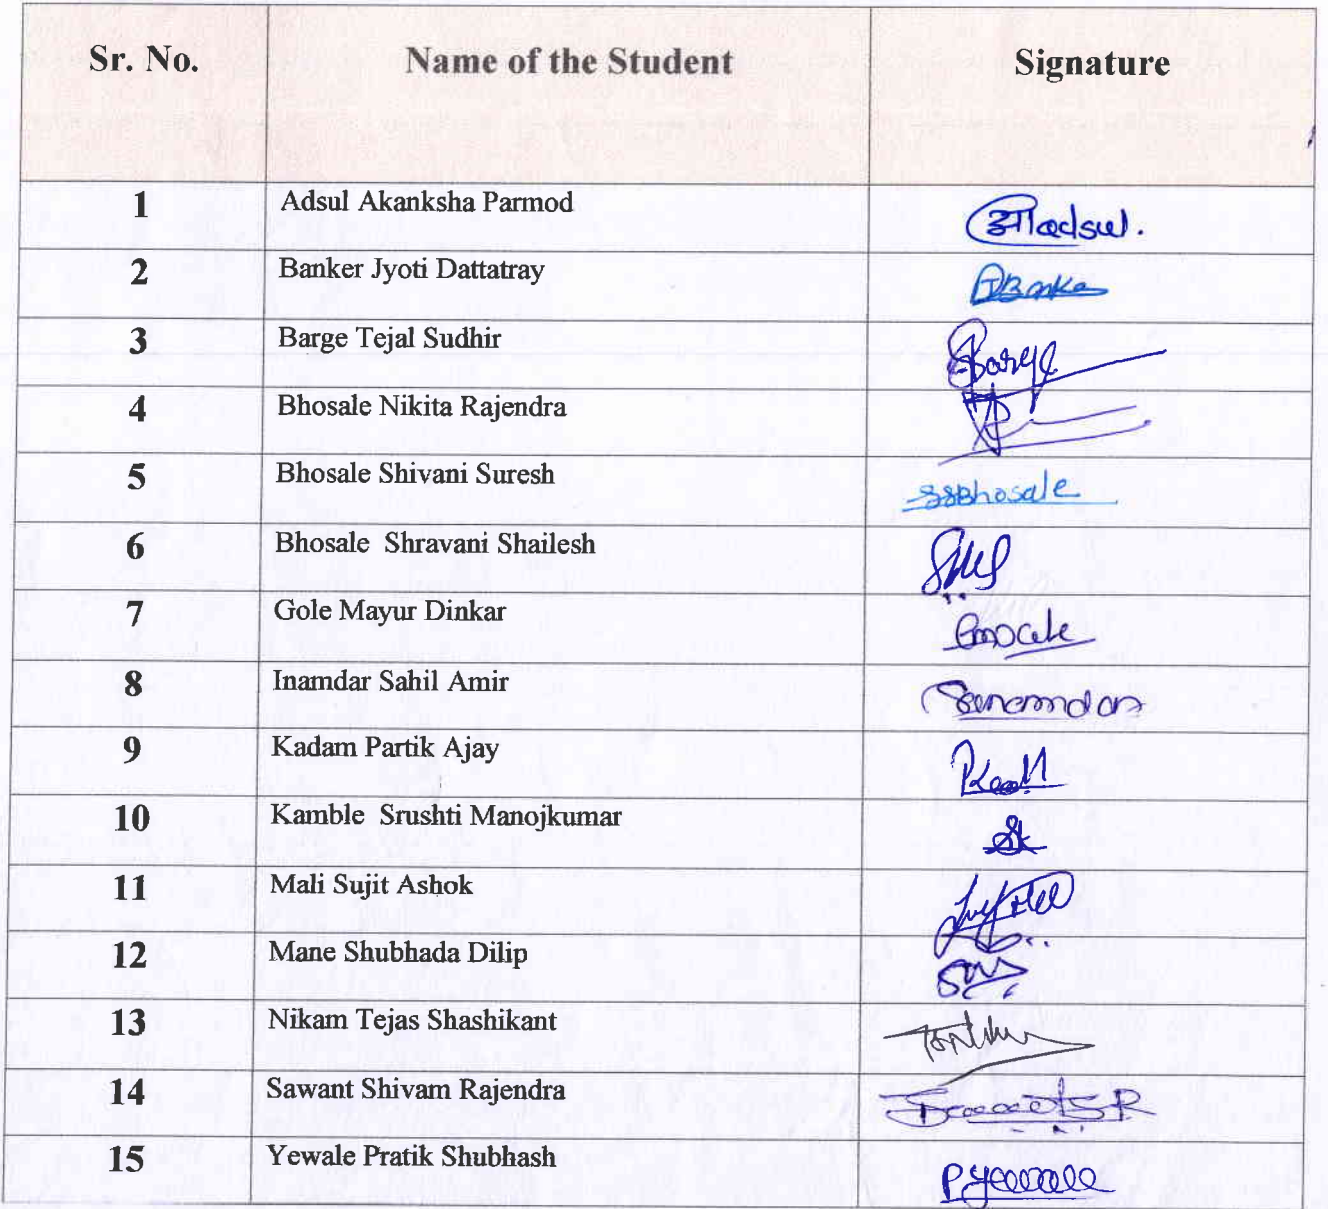 Sr. No. Name of the Student Signature
1 Adsul Akanksha Parmod आAdsul.
2 Banker Jyoti Dattatray
3 Barge Tejal Sudhir Barge
4 Bhosale Nikita Rajendra
5 Bhosale Shivani Suresh SSBhosale
6 Bhosale Shravani Shailesh
7 Gole Mayur Dinkar
8 Inamdar Sahil Amir
9 Kadam Partik Ajay
10 Kamble Srushti Manojkumar SK
11 Mali Sujit Ashok
12 Mane Shubhada Dilip
13 Nikam Tejas Shashikant
14 Sawant Shivam Rajendra
15 Yewale Pratik Shubhash PYewale